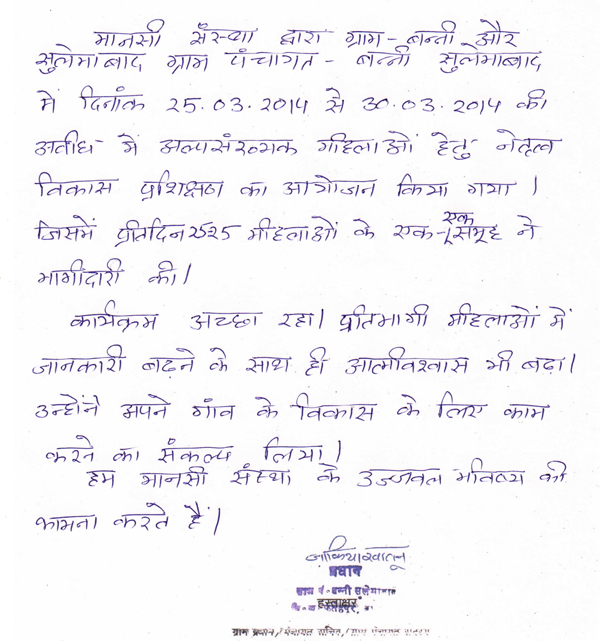 मानसी संस्था द्वारा ग्राम-बन्नी और
सुलेमाबाद ग्राम पंचागत-बन्नी सुलेमाबाद
में दिनांक 25.03.2014 से 30.03.2014 की
अवधि में अल्पसंख्यक महिलाओं हेतु नेतृत्व
विकास प्रशिक्षण का आयोजन किया गया।
जिसमें प्रतिदिन 25 महिलाओं के एक-एक समूह ने
भागीदारी की।
कार्यक्रम अच्छा रहा। प्रतिभागी महिलाओं में
जानकारी बढ़ने के साथ ही आत्मविश्वास भी बढ़ा।
उन्होंने अपने गांव के विकास के लिए काम
करने का संकल्प लिया।
हम मानसी संस्था के उज्जवल भविष्य की
कामना करते हैं।
प्रधान
ग्राम पं-बन्नी सुलेमाबाद
हस्ताक्षर
ग्राम प्रधान/पंचायत सचिव/ग्राम पंचायत सदस्य